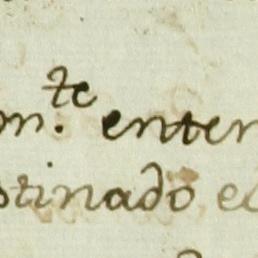 on.te enter
stinado e